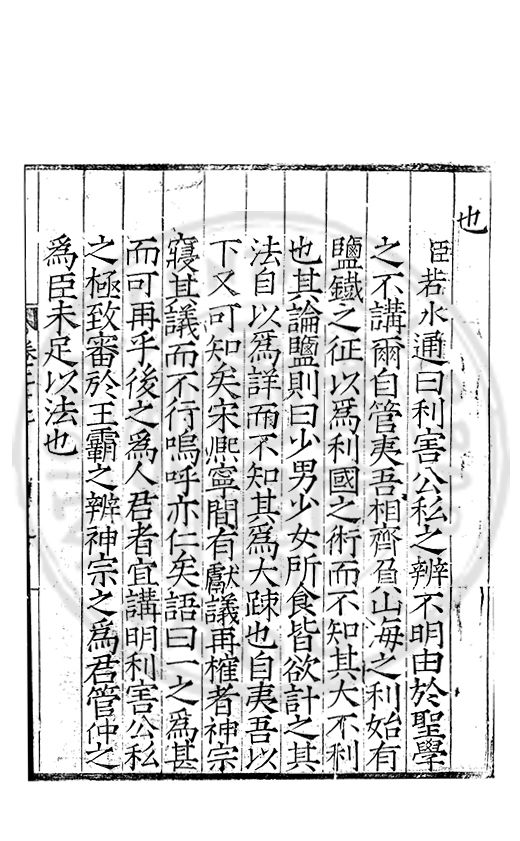 也
臣若水通曰利害公私之辨不明由於聖學
之不講爾自管夷吾相齊負山海之利始有
鹽鐵之征以爲利國之術而不知其大不利
也其論鹽則曰少男少女所食皆欲計之其
法自以爲詳而不知其爲大踈也自夷吾以
下又可知矣宋熈寧間有獻議再榷者神宗
寢其議而不行嗚呼亦仁矣語曰一之爲甚
而可再乎後之爲人君者宜講明利害公私
之極致審於王霸之辨神宗之爲君管仲之
爲臣未足以法也